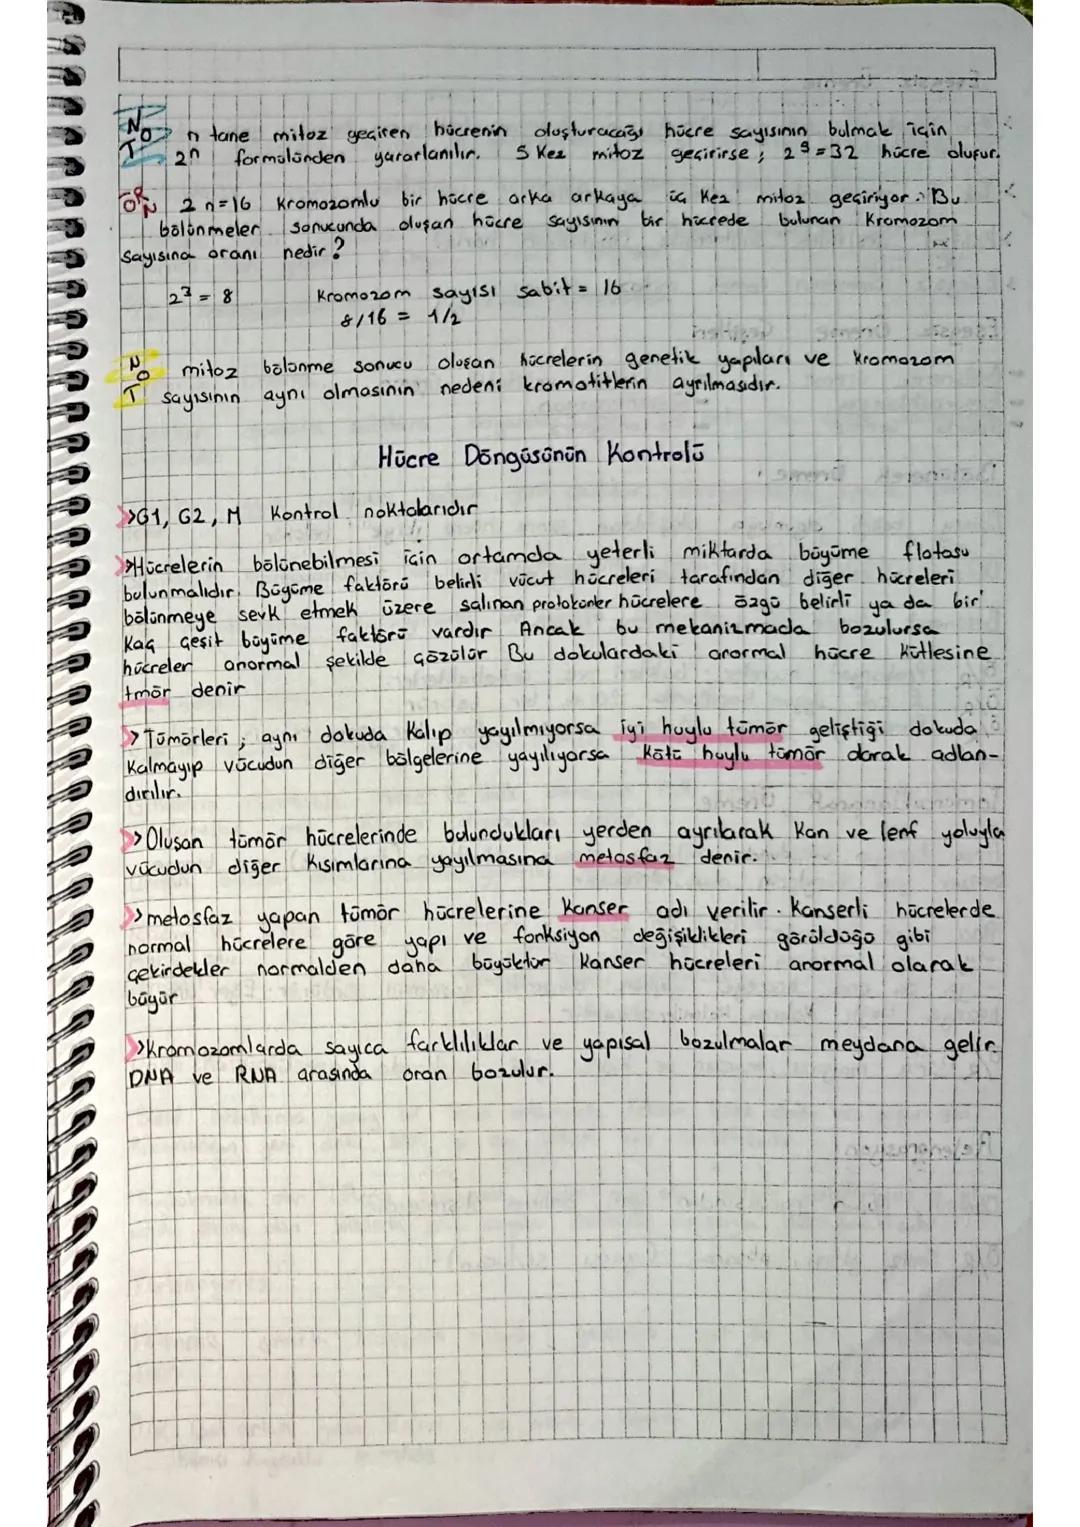 NOT n tane mitoz geçiren hücrenin oluşturacağı hücre sayısının bulmak için
2n formülünden yararlanılır. 5 Kez mitoz geçirirse; 2⁵=32 hücre oluşur.
ÖRN 2n=16 Kromozomlu bir hücre arka arkaya üç Kez mitoz geçiriyor. Bu
bölünmeler sonucunda oluşan hücre sayısının bir hücrede bulunan Kromozom
sayısına oranı nedir?
2³ = 8 Kromozom sayısı sabit = 16
8/16 = 1/2
NOT mitoz bölünme sonucu oluşan hücrelerin genetik yapıları ve kromozom
sayısının aynı olmasının nedeni kromotitlerin ayrılmasıdır.
Hücre Döngüsünün Kontrolü
>>G1, G2, M Kontrol noktalarıdır
>>Hücrelerin bölünebilmesi için ortamda yeterli miktarda büyüme flotasu
bulunmalıdır. Büyüme faktörü belirli vücut hücreleri tarafından diğer hücreleri
bölünmeye sevk etmek üzere salınan hücrelere özgü belirli ya da bir
Kaç çeşit büyüme faktörü vardır Ancak bu mekanizmada bozulursa
hücreler anormal şekilde çözülür Bu dokulardaki anormal hücre Kütlesine
tmör denir
>>Tümörleri; aynı dokuda Kalıp yayılmıyorsa iyi huylu tümör geliştiği dokuda
Kalmayıp vücudun diğer bölgelerine yayılıyorsa Kötü huylu tümör olarak adlan-
dırılır.
>>Oluşan tümör hücrelerinde bulundukları yerden ayrılarak Kan ve lenf yoluyla
vücudun diğer Kısımlarına yayılmasına metosfaz denir.
>>metosfaz yapan tümör hücrelerine Kanser adı verilir. Kanserli hücrelerde
normal hücrelere göre yapı ve fonksiyon değişiklikleri görüldüğü gibi
çekirdekler normalden daha büyüktür Kanser hücreleri anormal olarak
büyür
>>Kromozomlarda sayıca farklılıklar ve yapısal bozulmalar meydana gelir.
DNA ve RNA arasında oran bozulur.